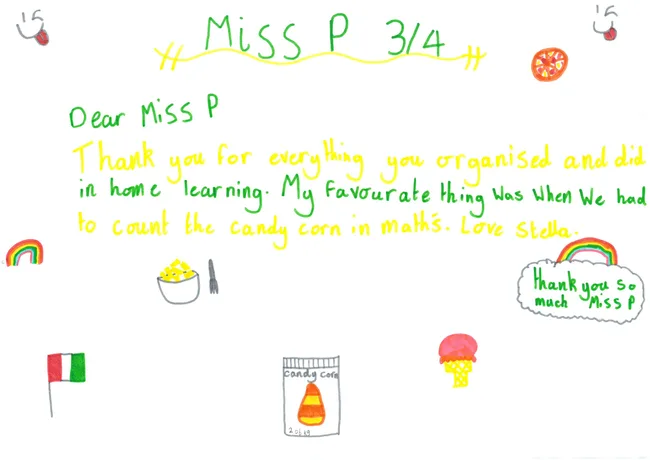 Miss P 3/4
Dear Miss P
Thank you for everything you organised and did
in home learning. My favourate thing was when we had
to count the candy corn in maths. Love Stella.
thank you so
much Miss P
candy corn